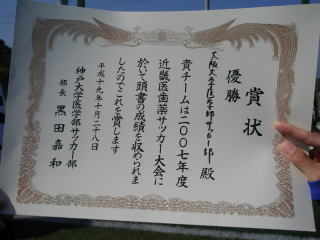 賞状
優勝
大阪大学医学部サッカー部 殿
貴チームは二〇〇七年度
近畿医歯薬サッカー大会に
於いて頭書の成績を収められま
したのでこれを賞します
平成十九年十月二十八日
神戸大学医学部サッカー部
部長 黒田嘉和